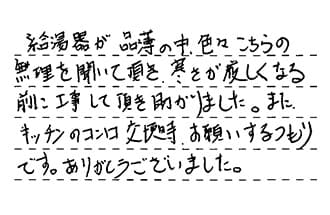 給湯器が 品薄の中、色々こちらの
無理を聞いて頂き、寒さが厳しくなる
前に工事して頂き助かりました。また、
キッチンのコンロ交換時、お願いするつもり
です。ありがとうございました。